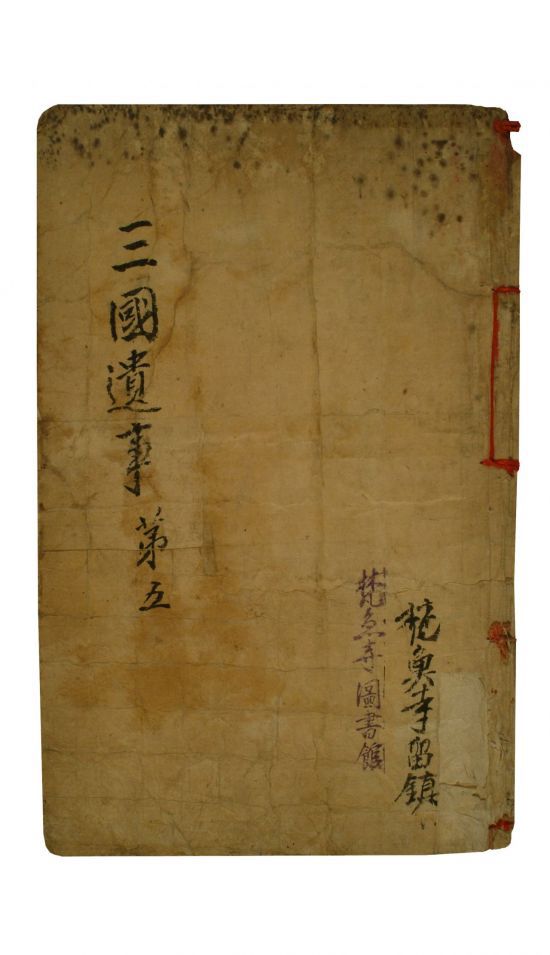 三國遺事 第五
梵魚寺圖書館
梵魚寺留鎮